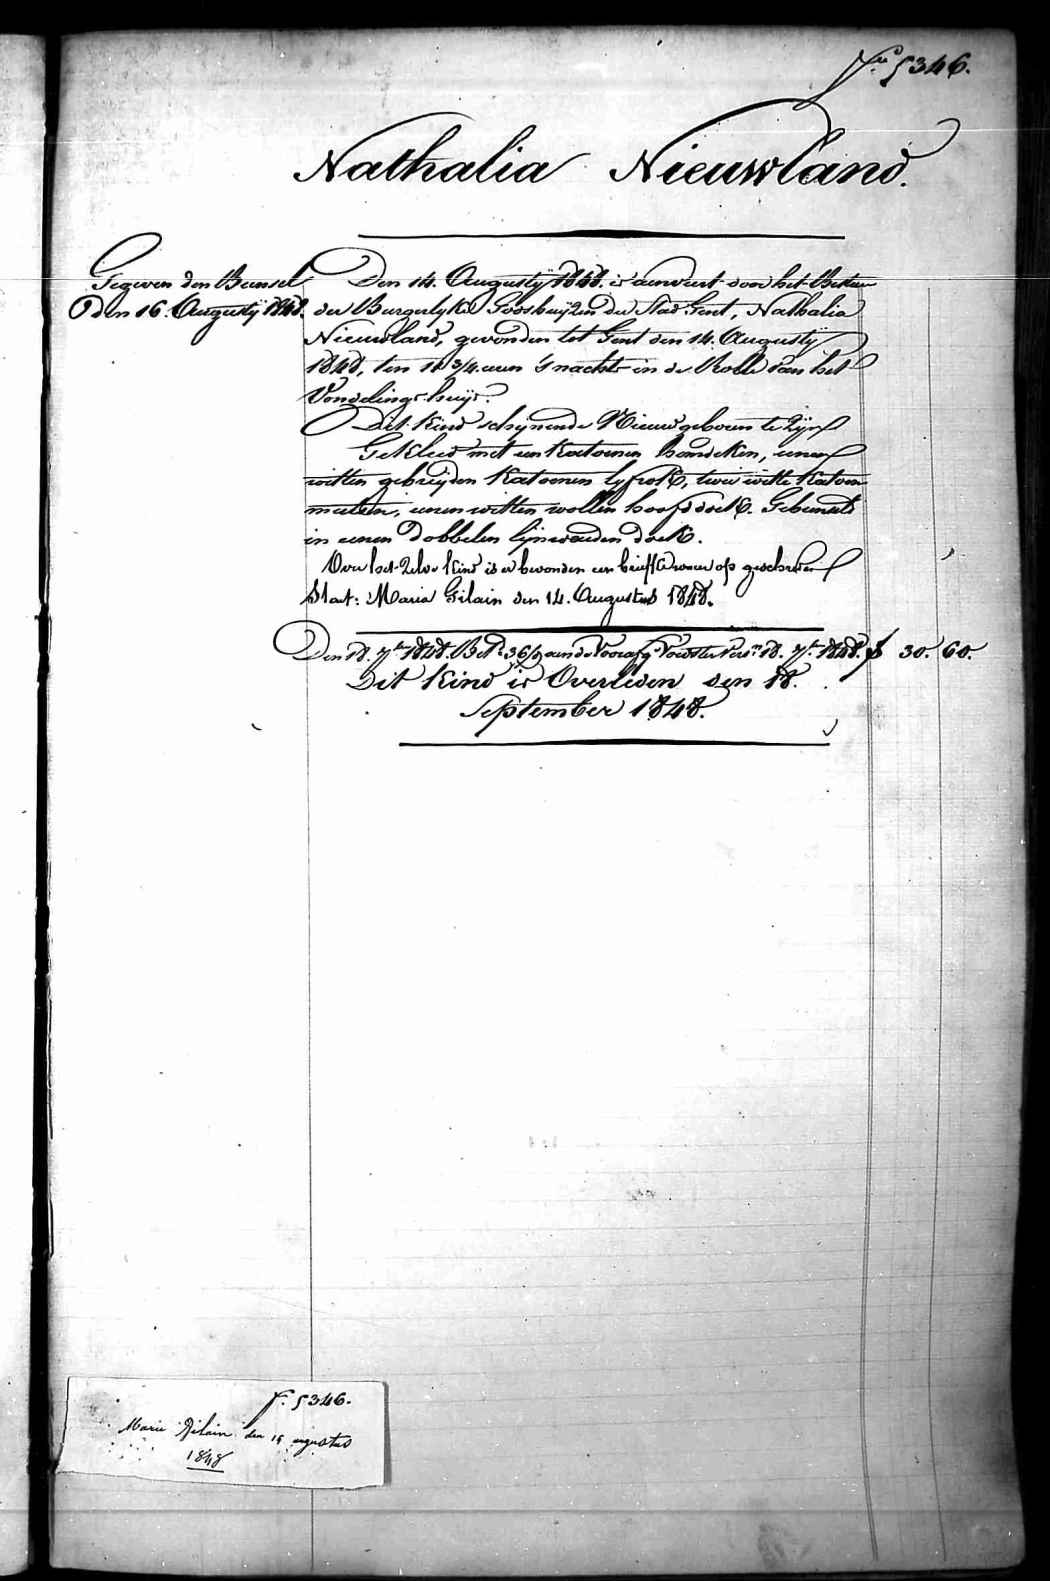 fo. 5346.
Nathalia Nieuwland.
Gegeven den Bunsel
den 16. Augusty 1848.
Den 14. Augusty 1848. is aenveert door het Bestuer
der Burgerlyke Godshuyzen der Stad Gent, Nathalia
Nieuwland, gevonden tot Gent den 14. Augusty
1848, ten 11 3/4 uren 's nachts in de Rolle van het
Vondelings-huys.
Dit Kind schynende Nieuwgeboren te zyn
Gekleed met een Katoenen hemdeken, eenen
witten gebreyden Katoenen lyfrok, twee witte Katoen
mutsen, eenen witten wollen hoofddoek. Gebunseld
in eenen dobbelen lynwaeden doek.
Over het zelve Kind is er bevonden een briefke waer op geschreven
Staet: Maria Gilain den 14. Augustus 1848.
Den 18. 7re 1848. Bet. 36/ aen de Voorster 18. 7re 1848. f 30. 60.
Dit Kind is Overleden den 18.
September 1848.
f. 5346.
Marie Gilain den 14 augustus
1848